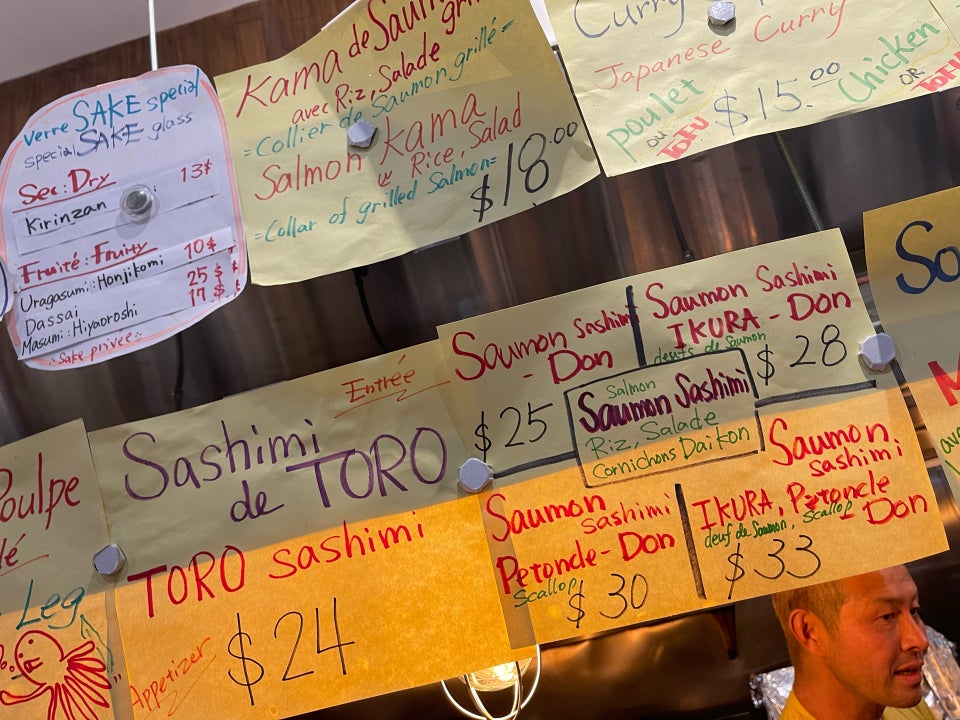 verre SAKE special
special SAKE glass
Sec: Dry 13$
Kirinzan
Fruité: Fruity
Uragasumi: Honjikomi 10$
Dassai 25$
Masumi: Hiyaoroshi 17$
Sake privée
Kama de Saumon
avec Riz, Salade
=Collier de Saumon grillé=
Salmon Kama
w Rice, Salad
=Collar of grilled Salmon=
$18.00
Curry
Japanese Curry
poulet ou TOFU
$15.00
Chicken OR TOFU
Poulpe
Leg
Entrée
Sashimi
de TORO
TORO sashimi
Appetizer
$24
Saumon Sashimi
- Don
$25
Saumon Sashimi
IKURA - Don
œufs de Saumon
$28
Salmon
Saumon Sashimi
Riz, Salade
Cornichons Daikon
Saumon
sashimi
Petoncle - Don
Scallop
$30
Saumon
sashimi
IKURA, Petoncle
- Don
œuf de Saumon, Scallop
$33
So